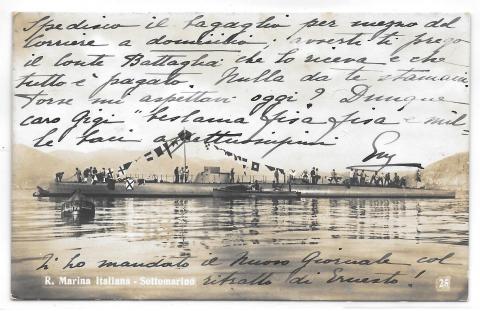 Spedisco il bagaglio per mezzo del
Corriere a domicilio: avverti ti prego
il conte Battaglia che lo riceva e che
tutto è pagato. Nulla da te stamani
Forse mi aspettavi oggi? Dunque
caro Gigi restama fisa fisa e mil-
le baci affettuosissimi
Ti ho mandato il Nuovo Giornale col
ritratto di Ernesto!
R. Marina Italiana - Sottomarino
28